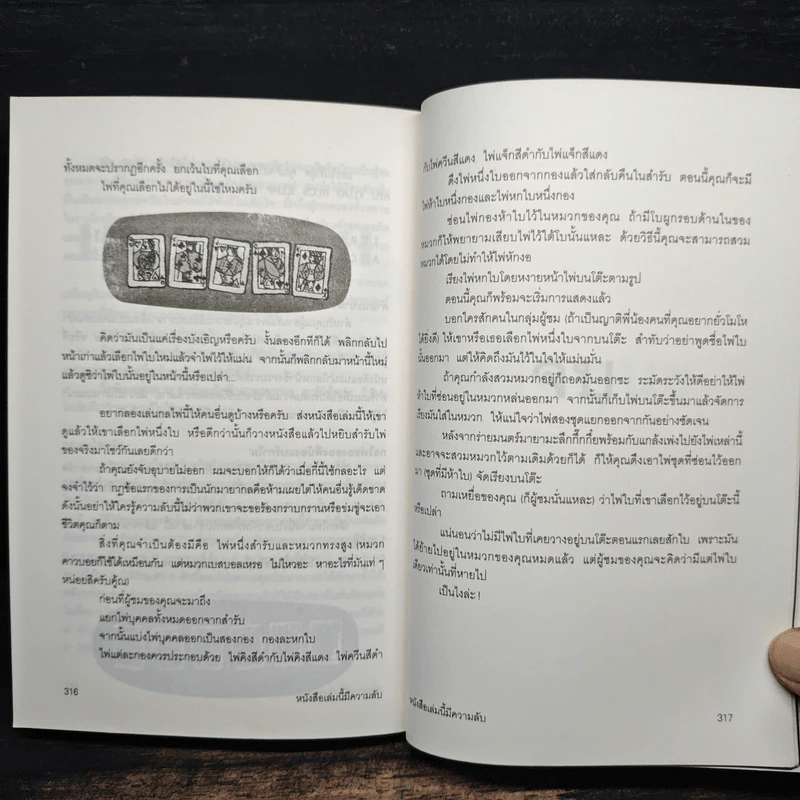 ทั้งหมดจะปรากฏอีกครั้ง ยกเว้นใบที่คุณเลือก
ไพ่ที่คุณเลือกไม่ได้อยู่ในนี้ใช่ไหมครับ
คิดว่ามันเป็นแค่เรื่องบังเอิญหรือครับ งั้นลองอีกทีก็ได้ พลิกกลับไป
หน้าเก่าแล้วเลือกไพ่ใบใหม่แล้วจำไพ่ไว้ให้แม่น จากนั้นก็พลิกกลับมาหน้านี้ใหม่
แล้วดูซิว่าไพ่ใบนั้นอยู่ในหน้านี้หรือเปล่า...
อยากลองเล่นกลไพ่นี้ให้คนอื่นดูบ้างหรือครับ ส่งหนังสือเล่มนี้ให้เขา
ดูแล้วให้เขาเลือกไพ่หนึ่งใบ หรือดีกว่านั้นก็วางหนังสือแล้วไปหยิบสำรับไพ่
ของจริงมาโชว์กันเลยดีกว่า
ถ้าคุณยังจับอุบายไม่ออก ผมจะบอกให้ก็ได้ว่าเมื่อกี้นี้ใช้กลอะไร แต่
จงจำไว้ว่า กฎข้อแรกของการเป็นนักมายากลคือห้ามเผยไต๋ให้คนอื่นรู้เด็ดขาด
ดังนั้นอย่าให้ใครรู้ความลับนี้ไม่ว่าพวกเขาจะขอร้องกราบกรานหรือข่มขู่จะเอา
ชีวิตคุณก็ตาม
สิ่งที่คุณจำเป็นต้องมีคือ ไพ่หนึ่งสำรับและหมวกทรงสูง (หมวก
คาวบอยก็ใช้ได้เหมือนกัน แต่หมวกเบสบอลเหรอ ไม่ไหวอะ หาอะไรที่มันเท่ ๆ
หน่อยสิครับคู้ณ)
ก่อนที่ผู้ชมของคุณจะมาถึง
แยกไพ่บุคคลทั้งหมดออกจากสำรับ
จากนั้นแบ่งไพ่บุคคลออกเป็นสองกอง กองละหกใบ
ไพ่แต่ละกองควรประกอบด้วย ไพ่คิงสีดำกับไพ่คิงสีแดง ไพ่ควีนสีดำ
316
หนังสือเล่มนี้มีความลับ
กับไพ่ควีนสีแดง ไพ่แจ็กสีดำกับไพ่แจ็กสีแดง
ดึงไพ่หนึ่งใบออกจากกองแล้วใส่กลับคืนในสำรับ ตอนนี้คุณก็จะมี
ไพ่ห้าใบหนึ่งกองและไพ่หกใบหนึ่งกอง
ซ่อนไพ่กองห้าใบไว้ในหมวกของคุณ ถ้ามีโบผูกรอบด้านในของ
หมวกก็ให้พยายามเสียบไพ่ไว้ใต้โบนั้นแหละ ด้วยวิธีนี้คุณจะสามารถสวม
หมวกได้โดยไม่ทำให้ไพ่หักงอ
เรียงไพ่หกใบโดยหงายหน้าไพ่บนโต๊ะตามรูป
ตอนนี้คุณก็พร้อมจะเริ่มการแสดงแล้ว
บอกใครสักคนในกลุ่มผู้ชม (ถ้าเป็นญาติพี่น้องคนที่คุณอยากยั่วโมโห
ได้ยิ่งดี) ให้เขาหรือเธอเลือกไพ่หนึ่งใบจากบนโต๊ะ กำชับว่าอย่าพูดชื่อไพ่ใบ
นั้นออกมา แต่ให้คิดถึงมันไว้ในใจให้แม่นมั่น
ถ้าคุณกำลังสวมหมวกอยู่ก็ถอดมันออกซะ ระมัดระวังให้ดีอย่าให้ไพ่
ห้าใบที่ซ่อนอยู่ในหมวกหล่นออกมา จากนั้นก็เก็บไพ่บนโต๊ะขึ้นมาแล้วจัดการ
เรียงมันใส่ในหมวก ให้แน่ใจว่าไพ่สองชุดแยกออกจากกันอย่างชัดเจน
หลังจากร่ายมนตร์มายามะลึกกึ๊กกึ๋ยพร้อมกับแกล้งเพ่งไปยังไพ่เหล่านี้
และอาจจะสวมหมวกไว้ตามเดิมด้วยก็ได้ ก็ให้คุณดึงเอาไพ่ชุดที่ซ่อนไว้ออก
มา (ชุดที่มีห้าใบ) จัดเรียงบนโต๊ะ
ถามเหยื่อของคุณ (ก็ผู้ชมนั่นแหละ) ว่าไพ่ใบที่เขาเลือกไว้อยู่บนโต๊ะนี้
หรือเปล่า
แน่นอนว่าไม่มีไพ่ใบที่เคยวางอยู่บนโต๊ะตอนแรกเลยสักใบ เพราะมัน
ได้ย้ายไปอยู่ในหมวกของคุณหมดแล้ว แต่ผู้ชมของคุณจะคิดว่ามีแต่ไพ่ใบ
เดียวเท่านั้นที่หายไป
เป็นไงล่ะ !
หนังสือเล่มนี้มีความลับ
317